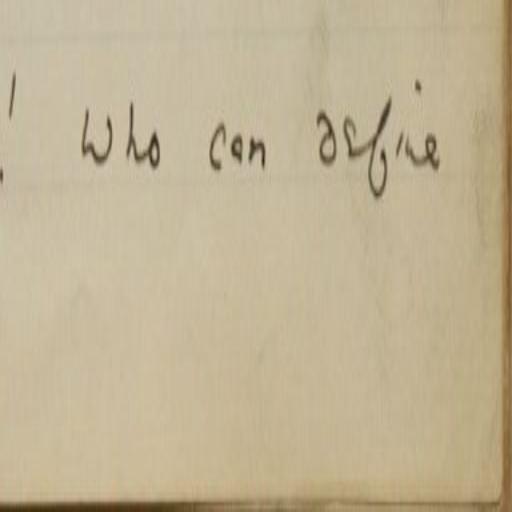 ! Who can define